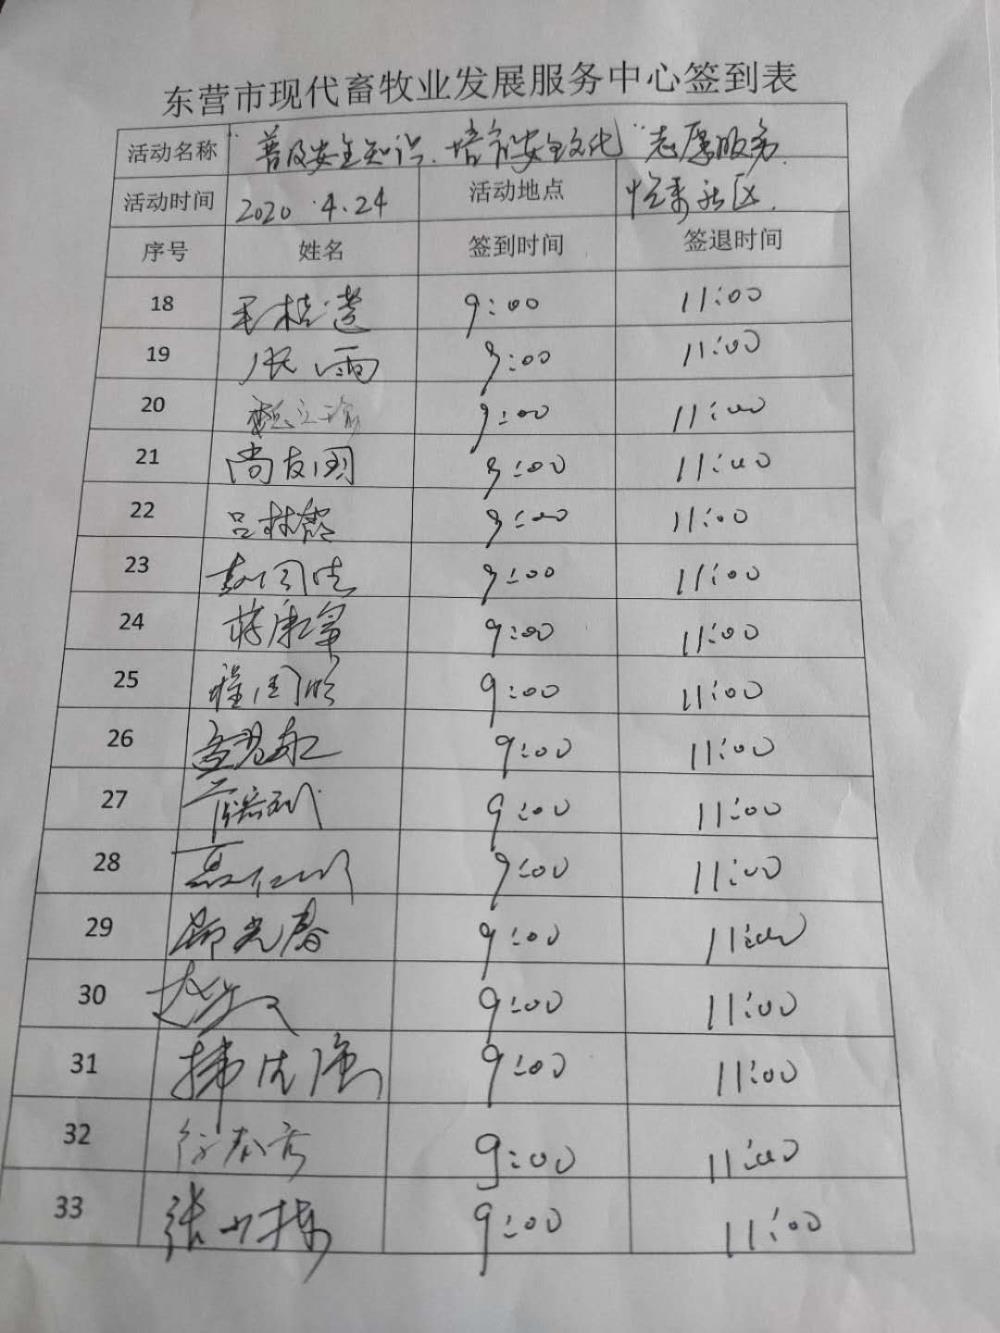 东营市现代畜牧业发展服务中心签到表
活动名称 "普及安全知识、培育安全文化"志愿服务
活动时间 2020.4.24 活动地点 社区
序号 姓名 签到时间 签退时间
18 9:00 11:00
19 9:00 11:00
20 9:00 11:00
21 尚友国 9:00 11:00
22 吕林 9:00 11:00
23 9:00 11:00
24 蒋康军 9:00 11:00
25 程国明 9:00 11:00
26 9:00 11:00
27 9:00 11:00
28 9:00 11:00
29 光春 9:00 11:00
30 9:00 11:00
31 9:00 11:00
32 徐春 9:00 11:00
33 张 9:00 11:00